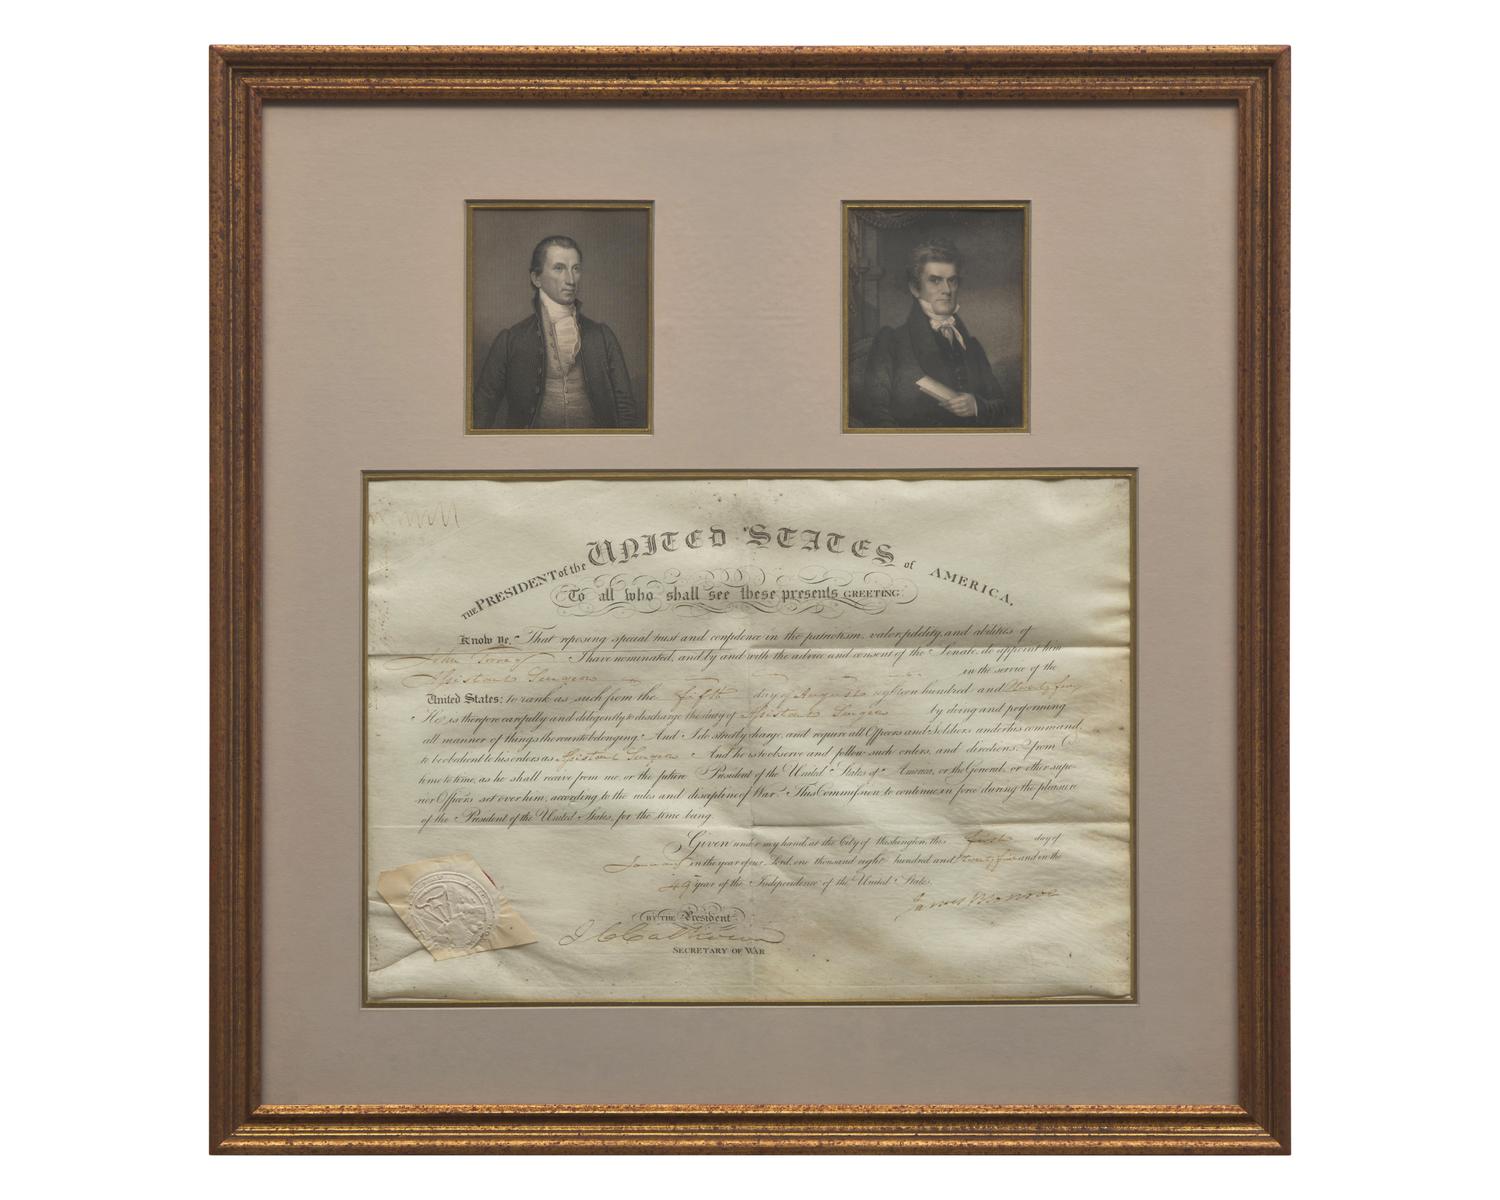 THE PRESIDENT of the UNITED STATES of AMERICA.
To all who shall see these presents GREETING:
Know Ye, That reposing special trust and confidence in the patriotism, valor, fidelity, and abilities of
John I have nominated, and by and with the advice and consent of the Senate, do appoint him
Assistant Surgeon in the service of the
United States: to rank as such from the fifth day of August eighteen hundred and twenty four
He is therefore carefully and diligently to discharge the duty of Assistant Surgeon by doing and performing
all manner of things thereunto belonging. And I do strictly charge, and require all Officers and Soldiers under his command,
to be obedient to his orders as Assistant Surgeon And he is to observe and follow such orders, and directions, from
time to time, as he shall receive from me, or the future President of the United States of America, or the General, or other supe-
rior Officers set over him, according to the rules and discipline of War. This Commission to continue in force during the pleasure
of the President of the United States, for the time being.
Given under my hand, at the City of Washington, this first day of
January in the year of our Lord, one thousand eight hundred and twenty five and in the
49th year of the Independence of the United States.
James Monroe
BY THE President
J C Calhoun
SECRETARY OF WAR